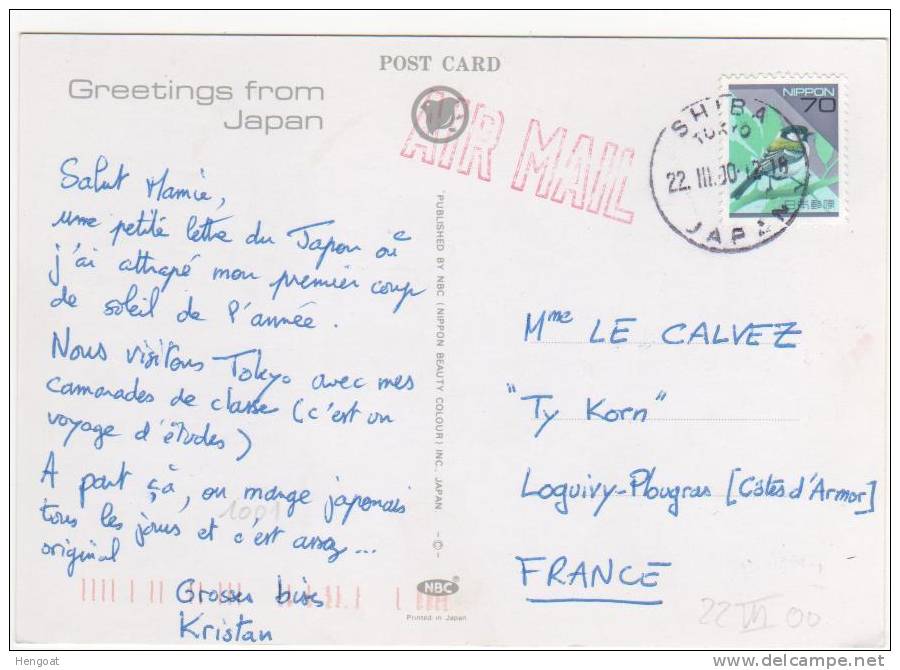 POST CARD
Greetings from
Japan
AIR MAIL
NIPPON
70
日本郵便
SHIBA
TOKYO
22.III.00.12-18
JAPAN
Salut Mamie,
une petite lettre du Japon où
j'ai attrapé mon premier coup
de soleil de l'année.
Nous visitons Tokyo avec mes
camarades de classe (c'est un
voyage d'études)
A part çà, on mange japonais
tous les jours et c'est assez...
original
Grosses bises
Kristan
PUBLISHED BY NBC (NIPPON BEAUTY COLOUR) INC. JAPAN
-©-
NBC®
Printed in Japan
Mme LE CALVEZ
"Ty Korn"
Loguivy-Plougras [Côtes d'Armor]
FRANCE
1001
22 III 00
Hengoat
www.delcampe.net